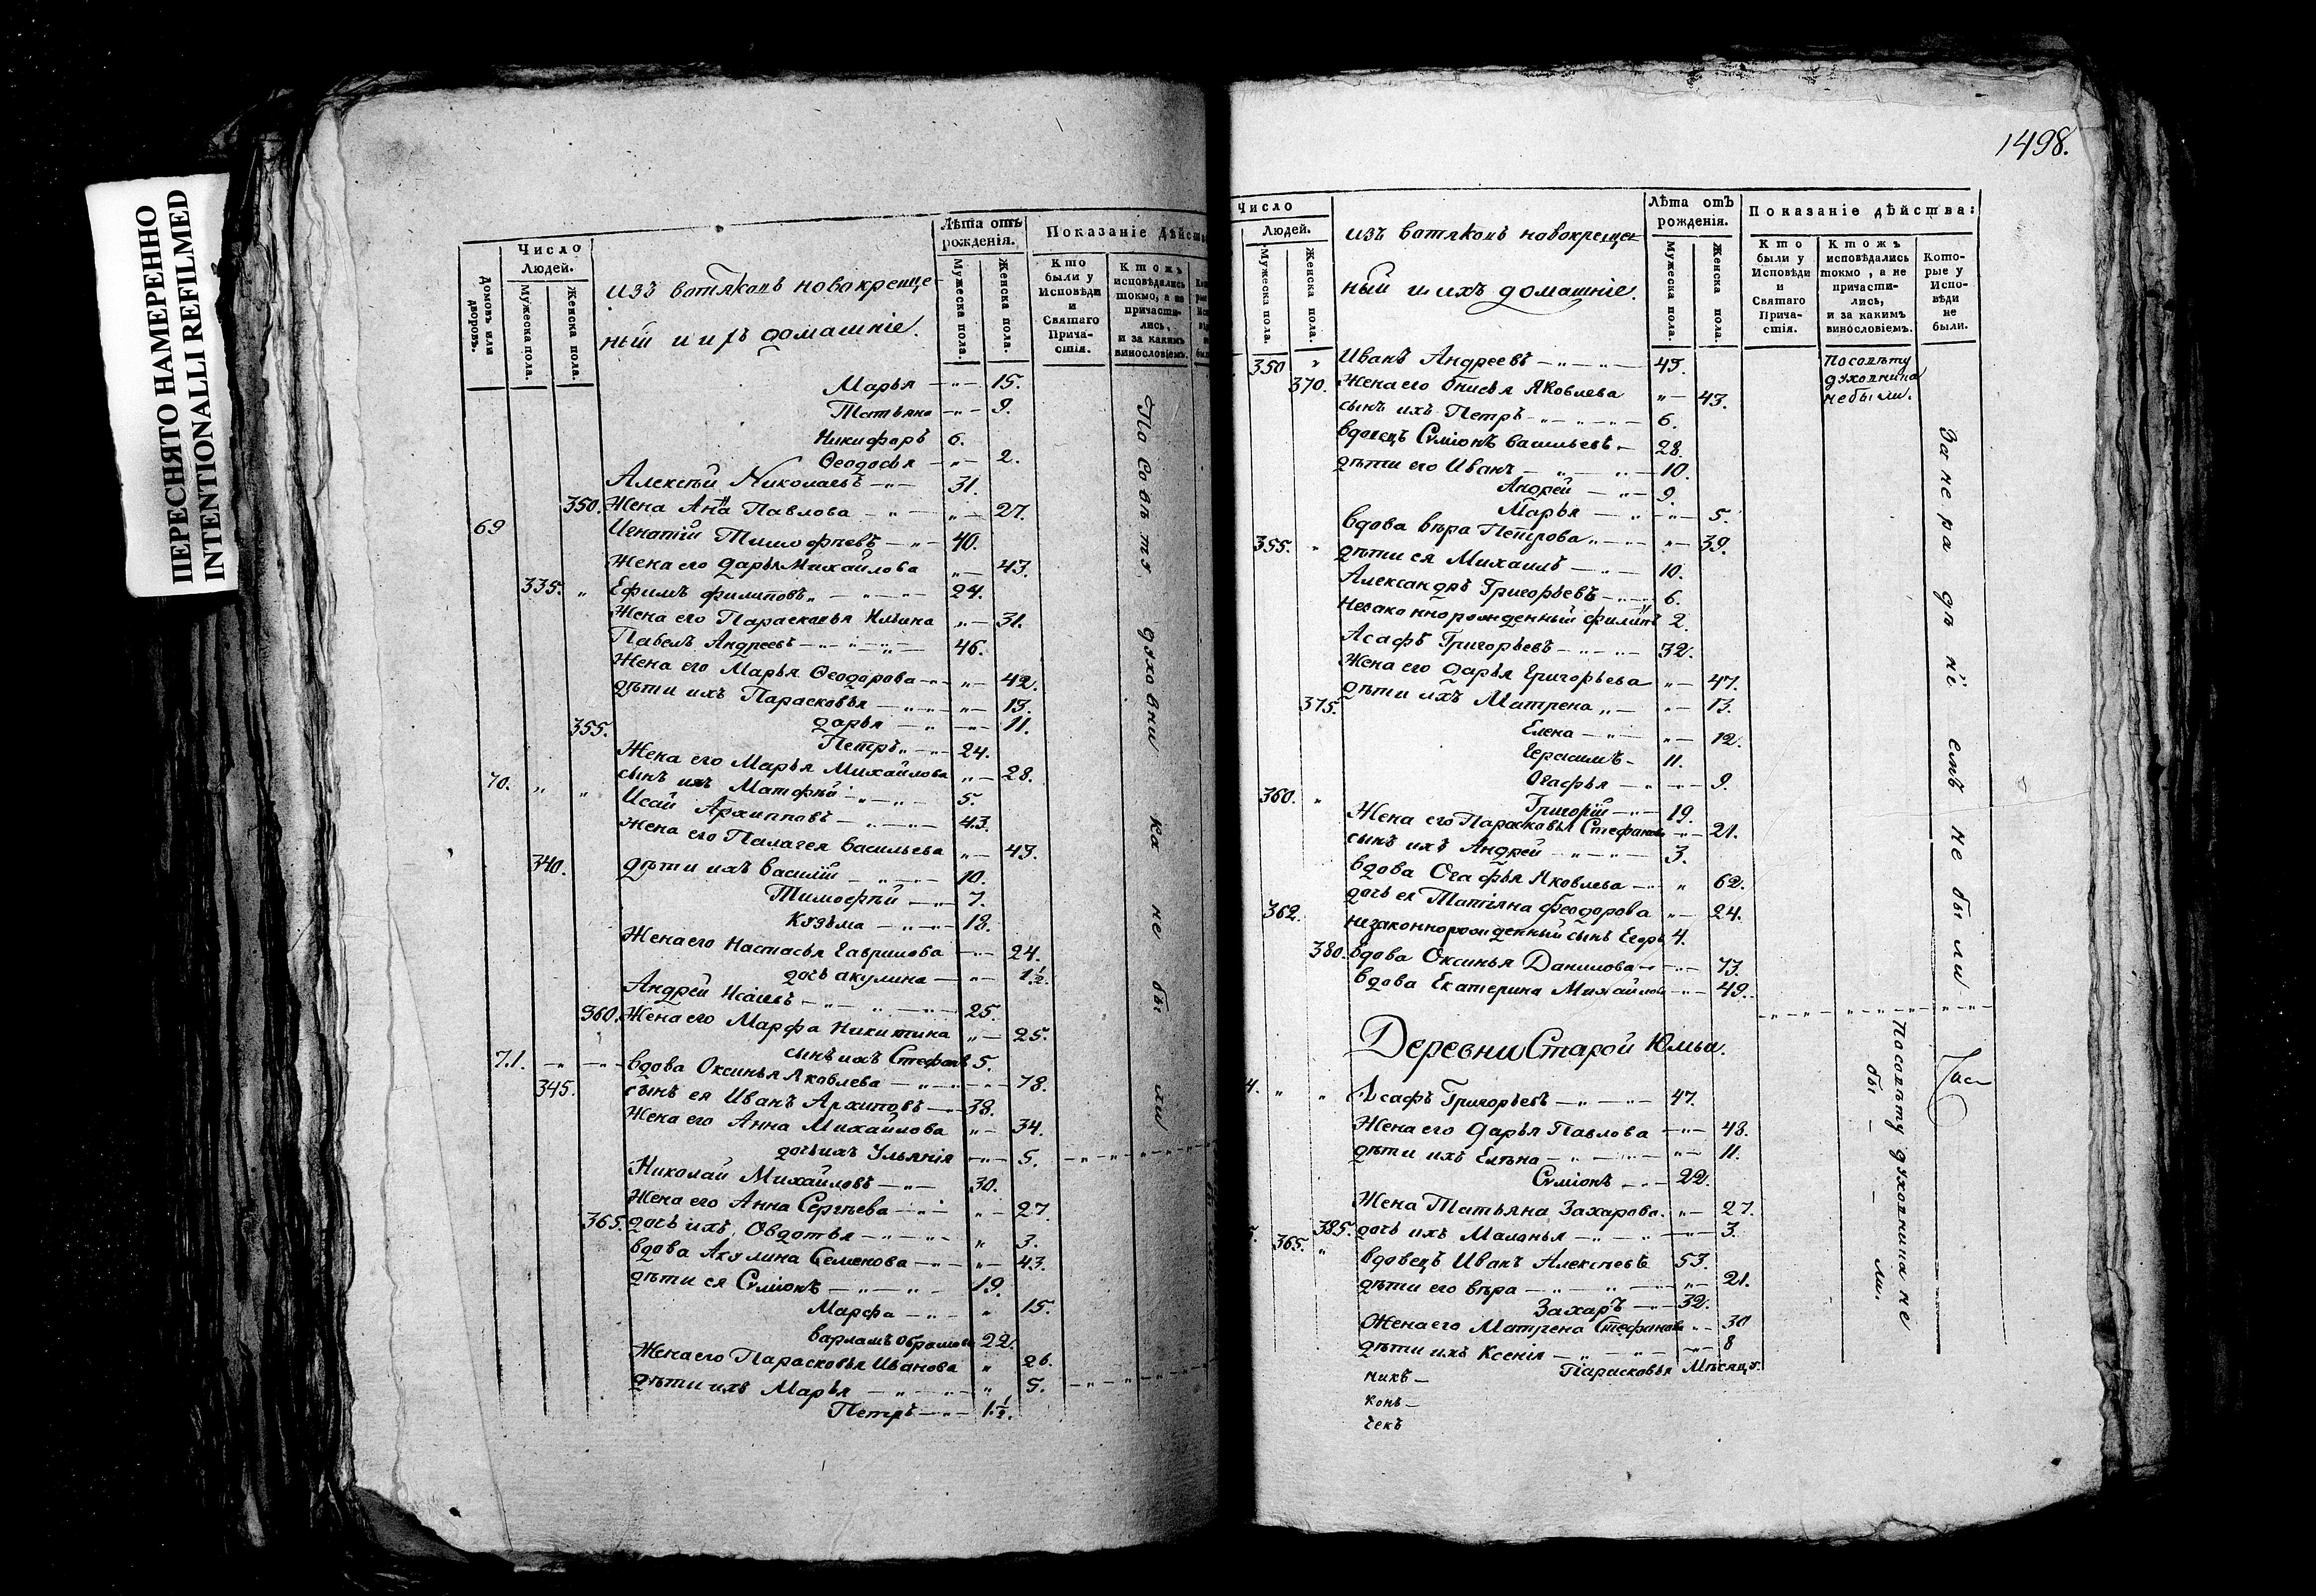 ПЕРЕСНЯТО НАМЕРЕННО
INTENTIONALLI REFILMED
Домовъ или дворовъ.
Число
Людей.
Мужеска пола.
Женска пола.
изъ вотяковъ новокреще-
ный и ихъ домашніе.
Лѣта отъ
рожденія.
Мужеска пола.
Женска пола.
Показаніе дѣйст
Кто
были у
Исповѣди
и
Святаго
Прича-
стія.
Ктожъ
исповѣдались
токмо, а не
причасти-
лись,
и за какимъ
винословіемъ.
Марья — „ — 15.
Татьяна — „ — 9.
Никифоръ 6.
Ѳеодосья — „ — 2.
Алексѣй Николаевъ — „ — 31.
350. Жена Анна Павлова — „ — „ — 27.
69 Игнатій Тимофѣевъ — „ — 40.
Жена его Дарья Михайлова „ — 43.
335. „ Ефимъ Филиповъ „ — „ — „ — 24.
Жена его Парасковья Ильина „ — 31.
Павелъ Андреевъ — „ — „ — 46.
Жена его Марья Ѳеодорова — „ — „ — 42.
дѣти ихъ Парасковья — „ — „ — 13.
355. Дарья — „ — „ — 11.
Петръ „ — „ — 24.
Жена его Марья Михайлова „ — 28.
сынъ ихъ Матфѣй — „ — „ — 5.
70. „ „ Исай Архипповъ — „ — „ — 43.
Жена его Палагея Васильева „ — 43.
340. дѣти ихъ Василій — „ — „ — 10.
Тимофѣй — „ — 7.
Кузьма — „ — „ — 18.
Жена его Настасья Гаврилова — „ — 24.
дочь Акулина — „ — 1½.
Андрей Исаіевъ — „ — „ — 25.
360. Жена его Марфа Никитина „ — 25.
сынъ ихъ Стефанъ 5.
71. — „ — „ — вдова Оксинья Яковлева — „ — „ — 78.
345. сынъ ея Иванъ Архиповъ — „ — 38.
Жена его Анна Михайлова „ — 34.
дочь ихъ Ульянія — „ — 5.
Николай Михайловъ — „ — 30.
Жена его Анна Сергѣева — „ — „ — 27.
365. дочь ихъ Овдотья — „ — „ — „ 3.
вдова Акулина Семенова — „ — „ — 43.
дѣти ея Симіонъ — „ — „ — 19.
Марфа — „ — „ 15.
Варламъ 22.
Жена его Парасковья Иванова „ 26.
дѣти ихъ Марья — „ — „ — „ 5.
Петръ — „ — 1½.
По совѣту духовника не были
1498.
Число
Людей.
Мужеска пола.
Женска пола.
изъ вотяковъ новокреще-
ный и ихъ домашніе.
Лѣта отъ
рожденія.
Мужеска пола.
Женска пола.
Показаніе дѣйства:
Кто
были у
Исповѣди
и
Святаго
Прича-
стія.
Ктожъ
исповѣдались
токмо, а не
причасти-
лись,
и за какимъ
винословіемъ.
Кото-
рые у
Испо-
вѣди
не
были.
350 „ Иванъ Андреевъ — „ — „ — 43.
370. Жена его Яковлева „ — 43.
сынъ ихъ Петръ — „ — „ — 6.
вдовецъ Симіонъ Васильевъ — 28.
дѣти его Иванъ — „ — „ — 10.
Андрей — „ — 9.
Марья — „ — „ — 5.
вдова Вѣра Петрова „ — „ — „ — 39.
355. „ дѣти ея Михаилъ — „ — 10.
Александръ Григорьевъ — „ — 6.
незаконнорожденный Филипъ 2.
Асафъ Григорьевъ — „ — „ — 32.
Жена его Дарья Григорьева „ — 47.
375. дѣти ихъ Матрена „ — „ — 13.
Елена — „ — „ — 12.
Герасимъ — 11.
Огафья — „ — 9.
360. „ Григорій — „ — 19.
Жена его Парасковья Стефанова — „ — 21.
сынъ ихъ Андрей — „ — „ — 3.
вдова Огафья Яковлева — „ — „ 62.
дочь ея Татіяна Феодорова „ — 24.
362. незаконнорожденный сынъ Егоръ 4.
380. вдова Оксинья Данилова — „ — „ — 73.
вдова Екатерина Михайлова — „ — 49.
Посовѣту
духовника
небыли.
За нерадѣніемъ не были
Деревни Старой Юмьи.
4. „ „ Асафъ Григорьевъ — „ — „ — 47.
Жена его Дарья Павлова — „ — 48.
дѣти ихъ Елѣна — „ — „ — „ — 11.
Симіонъ — „ — 22.
Жена Татьяна Захарова. „ — 27.
385. дочь ихъ Маланья — „ — „ — „ — 3.
5. 365. „ вдовецъ Иванъ Алексѣевъ 53.
дѣти его Вѣра — „ — „ — „ — 21.
Захаръ — „ — 32.
Жена его Матрена Стефанова „ — 30
дѣти ихъ Ксенія — „ — „ — „ — 8
Парасковья Мѣсяц.
Посовѣту духовника не
бы — — ли.
никъ —
конъ —
чекъ